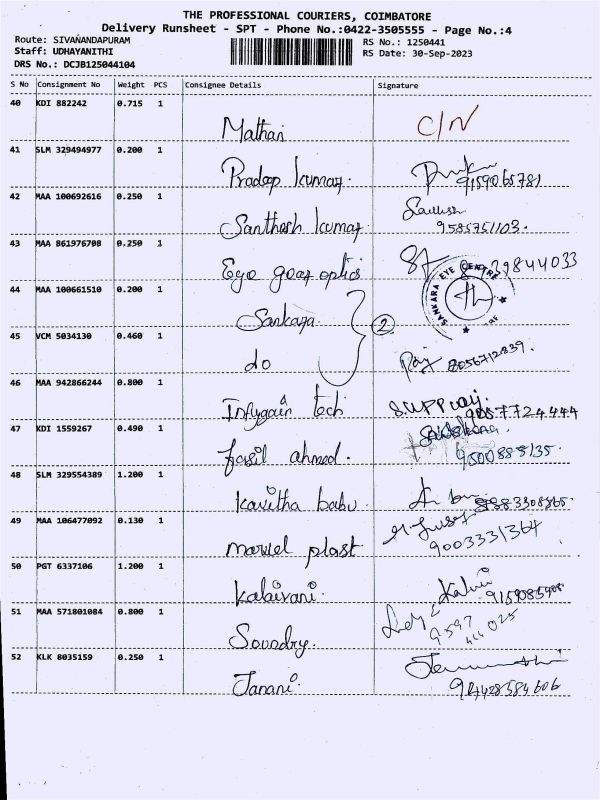 THE PROFESSIONAL COURIERS, COIMBATORE
Delivery Runsheet - SPT - Phone No.:0422-3505555 - Page No.:4
Route: SIVANANDAPURAM
Staff: UDHAYANITHI
DRS No.: DCJB125044104
RS No.: 1250441
RS Date: 30-Sep-2023
S No Consignment No Weight PCS Consignee Details Signature
40 KDI 882242 0.715 1 Mathan C/N
41 SLM 329494977 0.200 1 Pradeep kumar. 9159065781
42 MAA 100692616 0.250 1 Santhosh kumar 9585751103.
43 MAA 861976708 0.250 1 Eye gear optics 29844033
SANKARA EYE CENTRE
44 MAA 100661510 0.200 1 Sankara. 2
45 VCM 5034130 0.460 1 do Raj 8056712839.
46 MAA 942866244 0.800 1 Infygain tech 9087724444
47 KDI 1559267 0.490 1 fasil ahmed. 9500888135.
48 SLM 329554389 1.200 1 Kavitha babu 9883308865.
49 MAA 106477092 0.130 1 marvel plast 9003331364
50 PGT 6337106 1.200 1 Kalaivani. Kalai
51 MAA 571801084 0.800 1 Soundry. 9597 444 025
52 KLK 8035159 0.250 1 Janani.